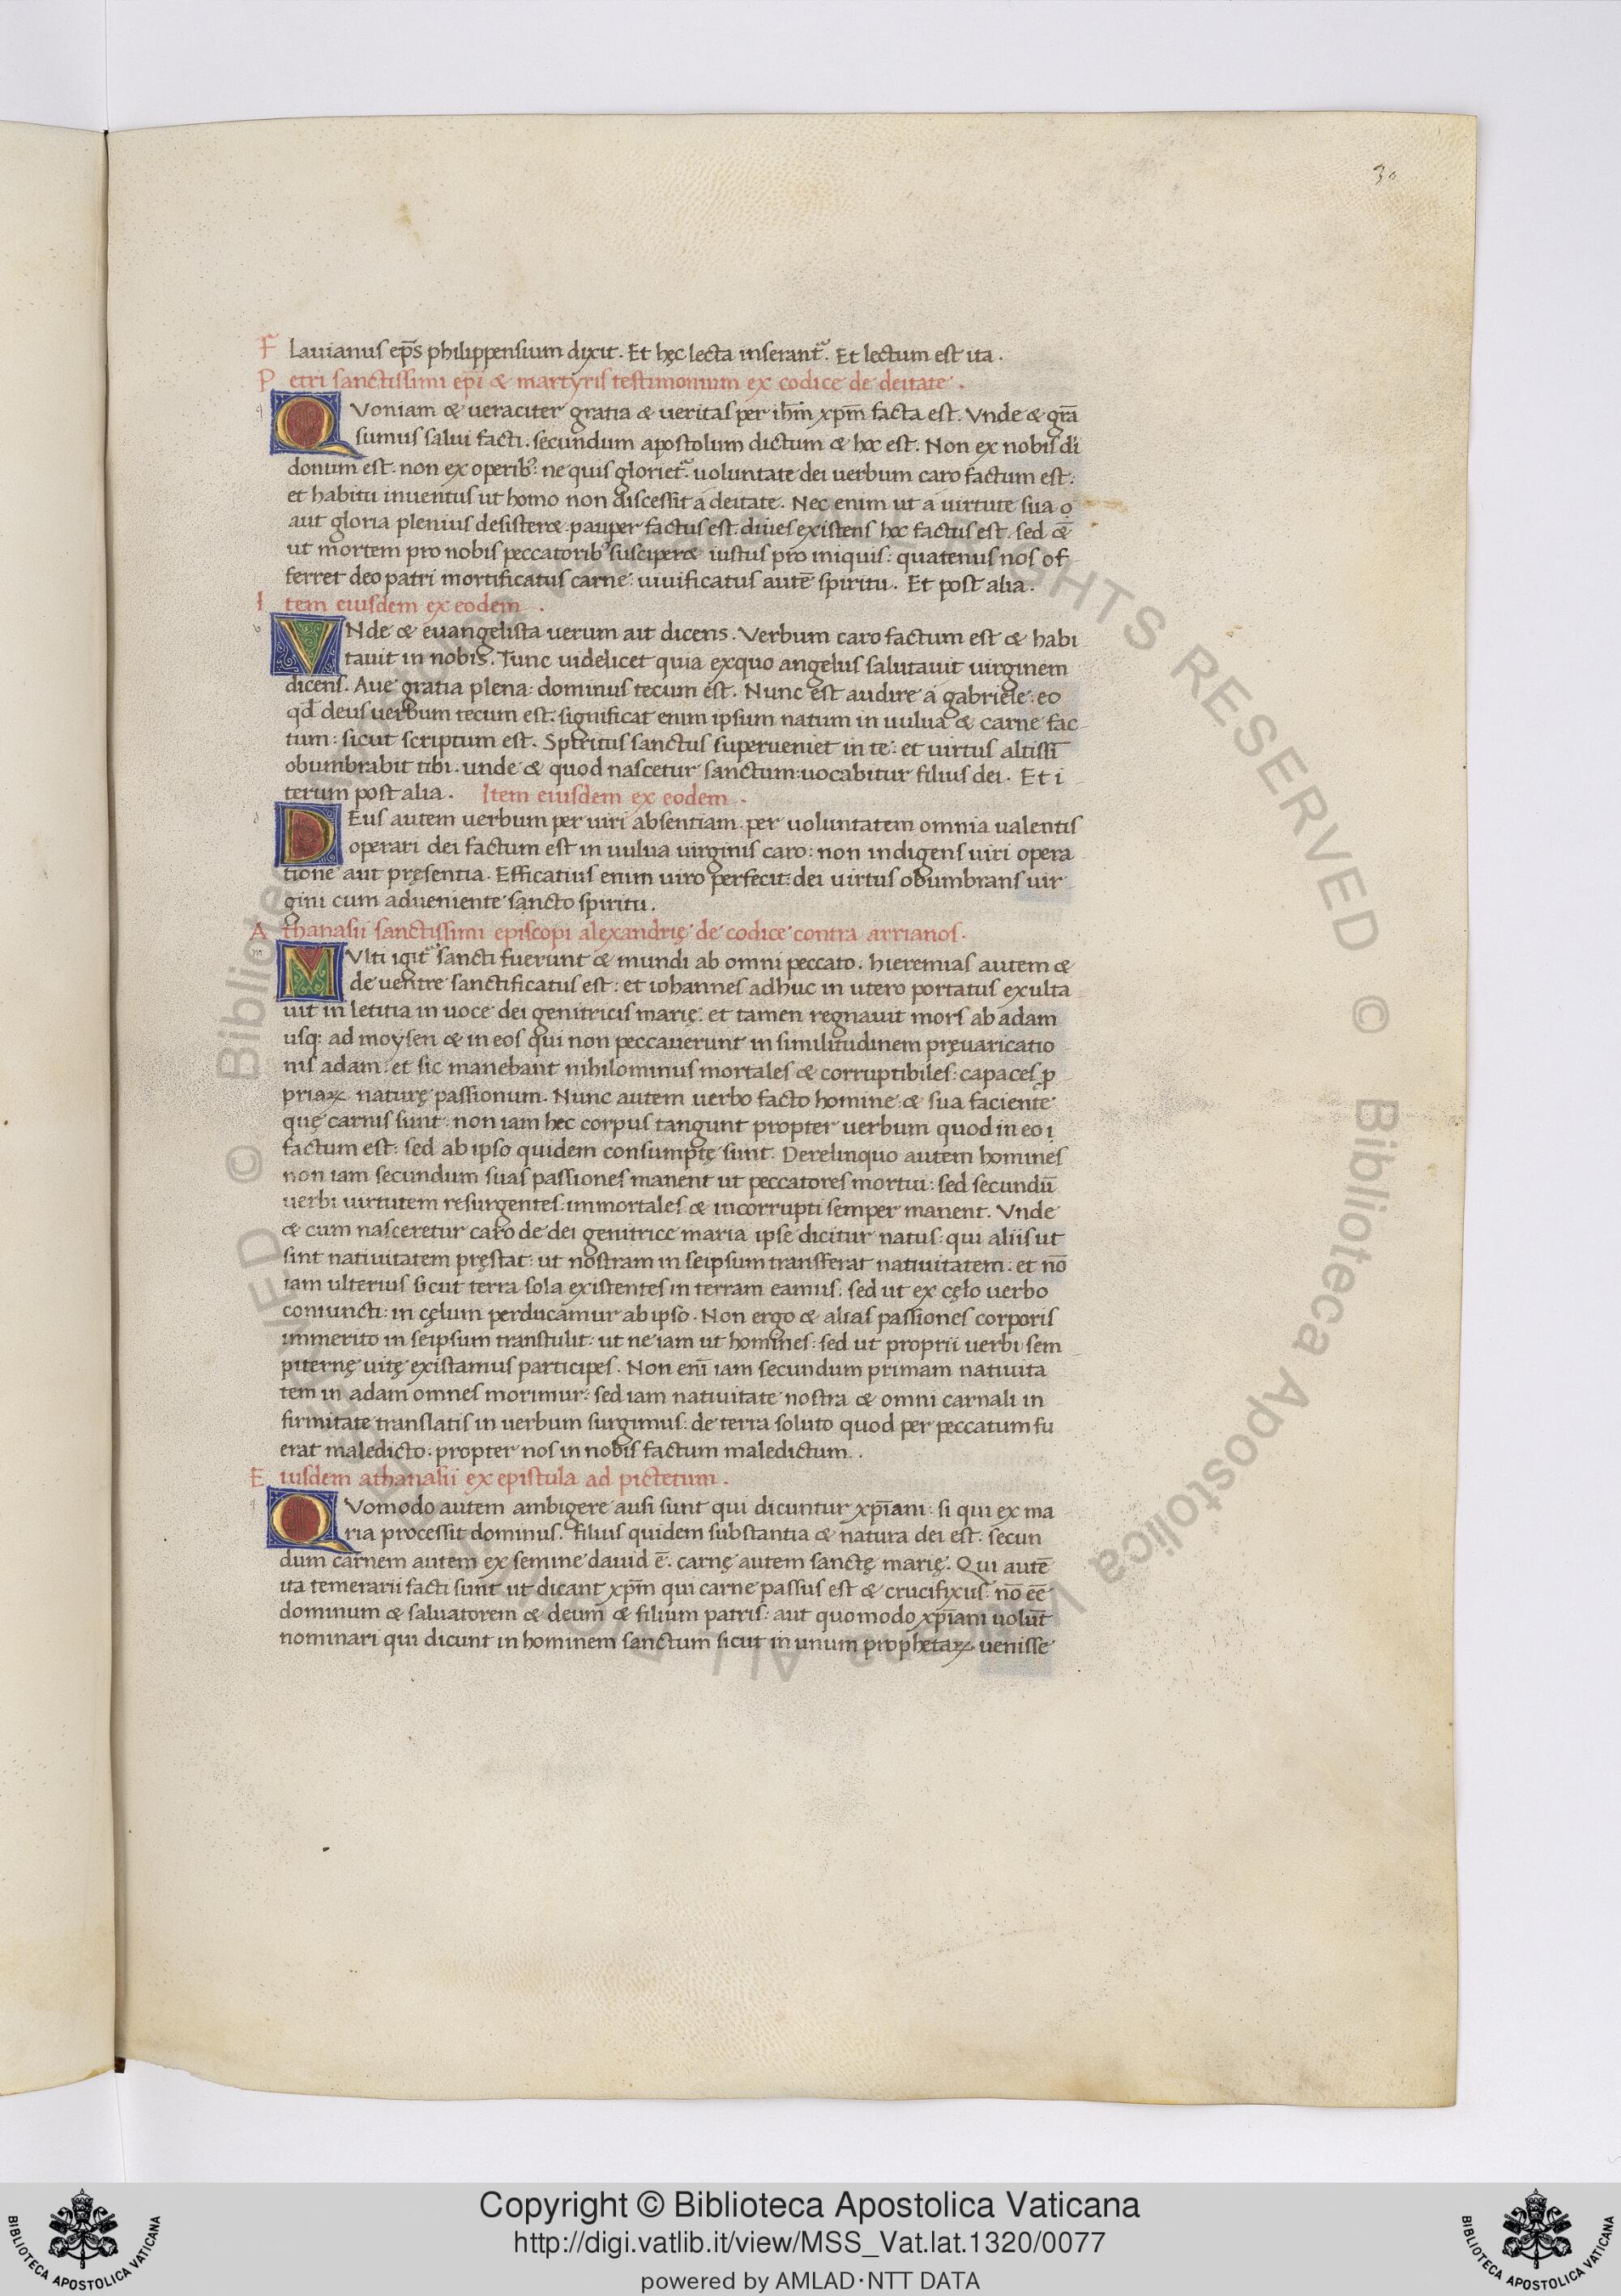 30
Flauianus ep̄s philippensium dixit. Et hęc lecta inserant᷑. Et lectum est ita.
Petri sanctissimi ep̄i & martyris testimonium ex codice de deitate.
QVoniam & ueraciter gratia & ueritas per ih̄m xp̄m facta est. Vnde & grā
sumus salui facti. secundum apostolum dictum & hoc est. Non ex nobis di
donum est. non ex operib;: ne quis gloriet᷑. uoluntate dei uerbum caro factum est:
et habitu inuentus ut homo non discessit a deitate. Nec enim ut a uirtute sua
aut gloria plenius desistere. pauper factus est. diues existens hoc factus est. sed &
ut mortem pro nobis peccatorib; susciperet iustus pro iniquis: quatenus nos of
ferret deo patri mortificatus carne: uiuificatus autē spiritu. Et post alia.
Item eiusdem ex eodem.
VNde & euangelista uerum ait dicens. Verbum caro factum est & habi
tauit in nobis. Tunc uidelicet quia exquo angelus salutauit uirginem
dicens. Aue gratia plena: dominus tecum est. Nunc est audire a gabriele: eo
qd̄ deus uerbum tecum est. significat enim ipsum natum in uulua & carne fac
tum: sicut scriptum est. Spiritus sanctus superueniet in te: et uirtus altissī
obumbrabit tibi. unde & quod nascetur sanctum: uocabitur filius dei. Et i
terum post alia. Item eiusdem ex eodem.
DEus autem uerbum per uiri absentiam. per uoluntatem omnia ualentis
operari dei factum est in uulua uirginis caro: non indigens uiri opera
tione aut pręsentia. Efficatius enim uiro perfecit: dei uirtus obumbrans uir
gini cum adueniente sancto spiritu.
Athanasii sanctissimi episcopi alexandrię de codice contra arrianos.
MVlti igit᷑ sancti fuerunt & mundi ab omni peccato. hieremias autem &
de uentre sanctificatus est: et iohannes adhuc in utero portatus exulta
uit in letitia in uoce dei genitricis marię: et tamen regnauit mors ab adam
usq; ad moysen & in eos qui non peccauerunt in similitudinem pręuaricatio
nis adam: et sic manebant nihilominus mortales & corruptibiles: capaces ꝓ
priaꝝ naturę passionum. Nunc autem uerbo facto homine & sua faciente
quę carnis sunt: non iam hec corpus tangunt propter uerbum quod in eo
factum est: sed ab ipso quidem consumptę sunt. Derelinquo autem homines
non iam secundum suas passiones manent ut peccatores mortui: sed secundū
uerbi uirtutem resurgentes: immortales & incorrupti semper manent. Vnde
& cum nasceretur caro de dei genitrice maria ipse dicitur natus: qui aliis ut
sint natiuitatem pręstat: ut nostram in seipsum transferat natiuitatem. et nō
iam ulterius sicut terra sola existentes in terram eamus: sed ut ex cęlo uerbo
coniuncti: in cęlum perducamur ab ipso. Non ergo & alias passiones corporis
immerito in seipsum transtulit: ut ne iam ut homines: sed ut proprii uerbi sem
piternę uitę existamus participes. Non eni̅ iam secundum primam natiuita
tem in adam omnes morimur: sed iam natiuitate nostra & omni carnali in
firmitate translatis in uerbum surgimus: de terra soluto quod per peccatum fu
erat maledicto: propter nos in nobis factum maledictum.
Eiusdem athanasii ex epistula ad pictetum.
QVomodo autem ambigere ausi sunt qui dicuntur xp̄iani: si qui ex ma
ria processit dominus. filius quidem substantia & natura dei est: secun
dum carnem autem ex semine dauid ē. carnę autem sanctę marię. Qui autē
ita temerarii facti sunt ut dicant xp̄m qui carne passus est & crucifixus: nō eē
dominum & saluatorem & deum & filium patris: aut quomodo xp̄iani uolūt
nominari qui dicunt in hominem sanctum sicut in unum prophetaꝝ uenisse
© Biblioteca Apostolica Vaticana ALL RIGHTS RESERVED © Biblioteca Apostolica Vaticana ALL RIGHTS RESERVED
Copyright © Biblioteca Apostolica Vaticana
http://digi.vatlib.it/view/MSS_Vat.lat.1320/0077
powered by AMLAD·NTT DATA
BIBLIOTECA APOSTOLICA VATICANA
BIBLIOTECA APOSTOLICA VATICANA